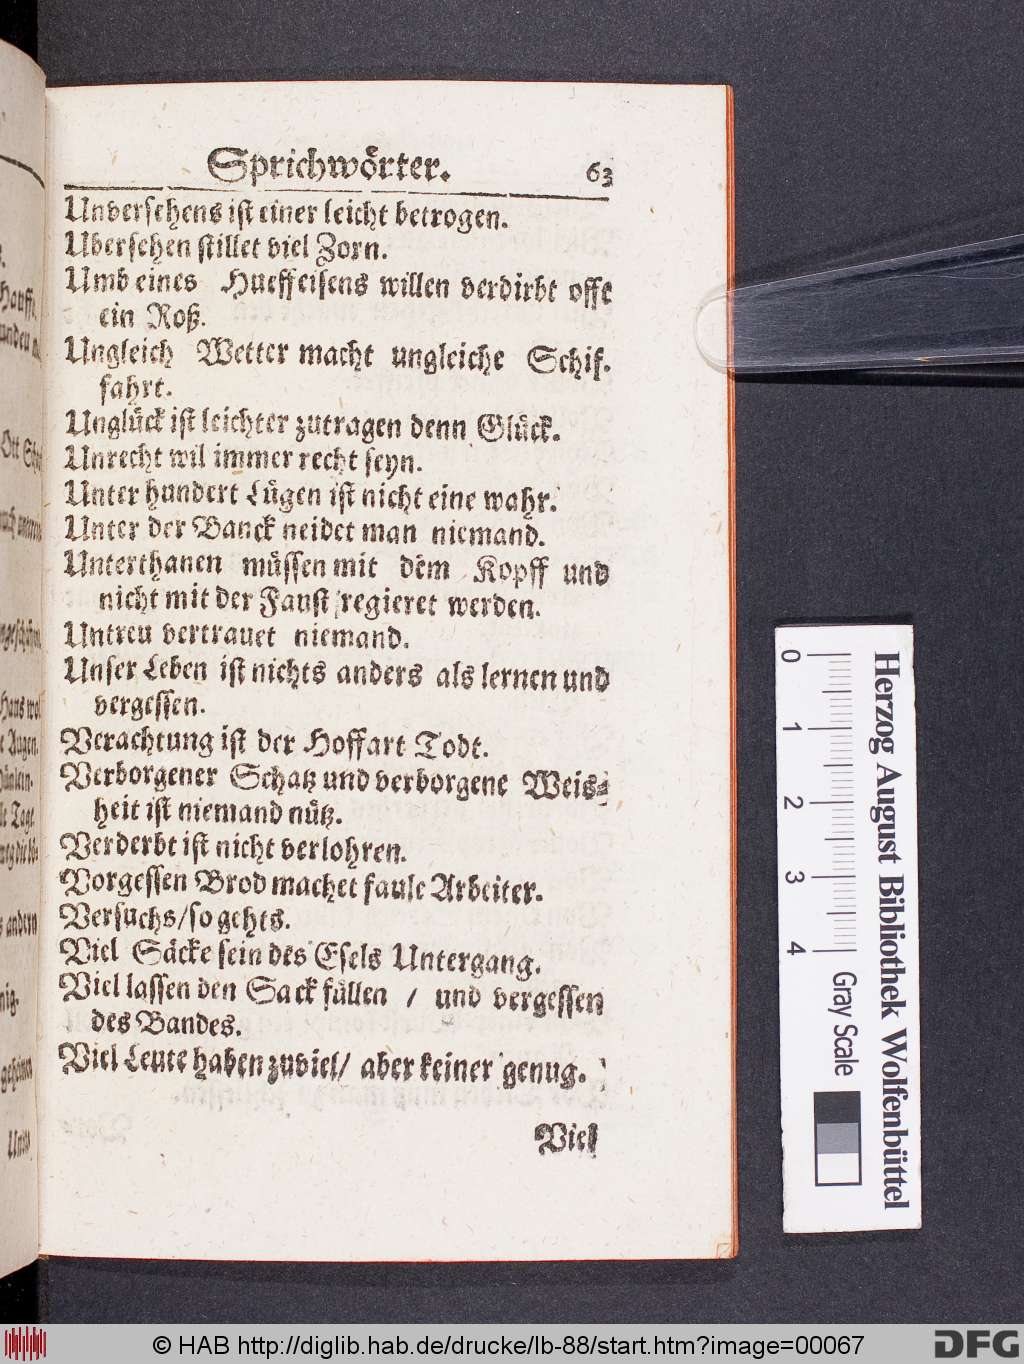 Sprichwörter. 63
Unversehens ist einer leicht betrogen.
Ubersehen stillet viel Zorn.
Umb eines Hueffeisens willen verdirbt offt
ein Roß.
Ungleich Wetter macht ungleiche Schif-
fahrt.
Unglück ist leichter zutragen denn Glück.
Unrecht wil immer recht seyn.
Unter hundert Lügen ist nicht eine wahr.
Unter der Banck neidet man niemand.
Unterthanen müssen mit dem Kopff und
nicht mit der Faust regieret werden.
Untreu vertrauet niemand.
Unser Leben ist nichts anders als lernen und
vergessen.
Verachtung ist der Hoffart Todt.
Verborgener Schatz und verborgene Weis-
heit ist niemand nütz.
Verderbt ist nicht verlohren.
Vorgessen Brod machet faule Arbeiter.
Versuchs/so gehts.
Viel Säcke sein des Esels Untergang.
Viel lassen den Sack füllen / und vergessen
des Bandes.
Viel Leute haben zuviel/ aber keiner genug.
Viel
Hauff.
Ott
Hans wol
Augen.
Tage.
andern
nig.
0 1 2 3 4
Gray Scale
Herzog August Bibliothek Wolfenbüttel
© HAB http://diglib.hab.de/drucke/lb-88/start.htm?image=00067
DFG